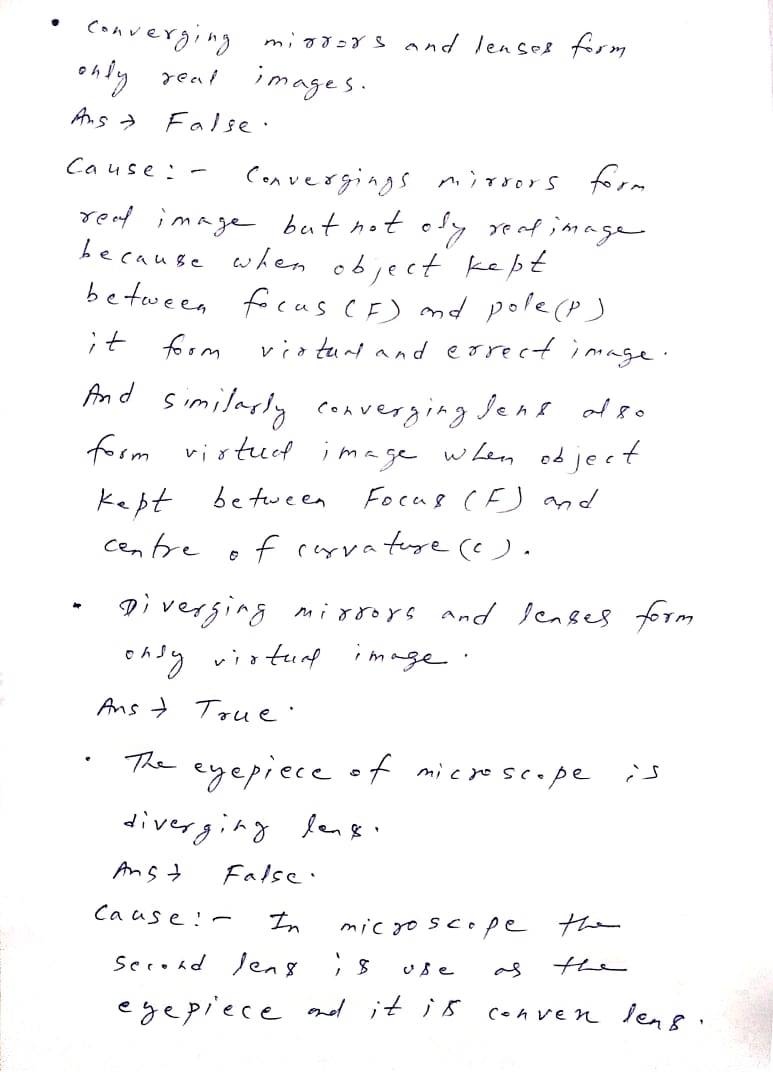 • Converging mirrors and lenses form
only real images.
Ans → False.
Cause:- Convergings mirrors form
real image but not oly real image
because when object kept
between focus (F) and pole (P)
it form virtual and errect image.
And similarly converging lens also
form virtual image when object
kept between Focus (F) and
centre of curvature (c).
• Diverging mirrors and lenses form
only virtual image.
Ans → True.
• The eyepiece of microscope is
diverging lens.
Ans → False.
Cause:- In microscope the
second lens is use as the
eyepiece and it is conven lens.